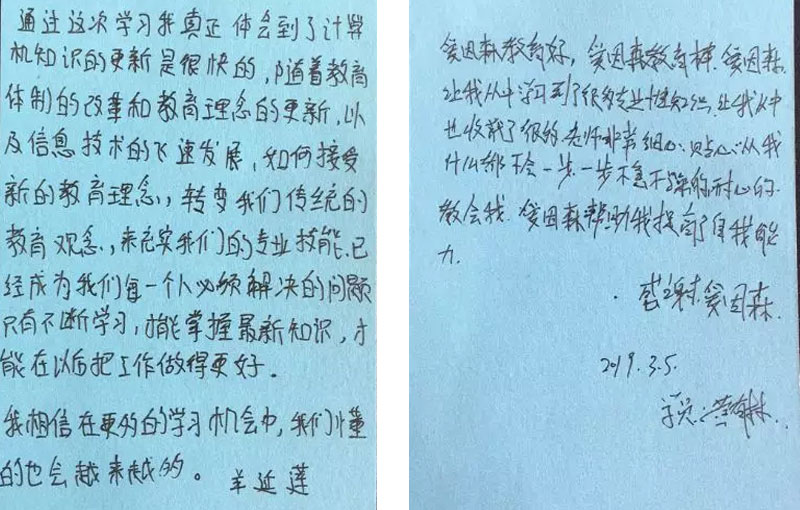 通过这次学习我真正体会到了计算
机知识的更新是很快的，随着教育
体制的改革和教育理念的更新，以
及信息技术的飞速发展，如何接受
新的教育理念，转变我们传统的
教育观念，来充实我们的专业技能，已
经成为我们每一个人必须解决的问题
只有不断学习，才能掌握最新知识，才
能在以后把工作做得更好。
我相信在更多的学习机会中，我们懂
的也会越来越多。 羊延莲
爱因森教育好，爱因森教育棒，爱因森
让我从中学习到了很多专业性知识，让我从中
也收获了很多，老师非常细心、贴心，从我
什么都不会一步一步不急不躁的耐心的
教会我，爱因森帮助我提高了自我能
力.
感谢爱因森.
2019.3.5.
学员：